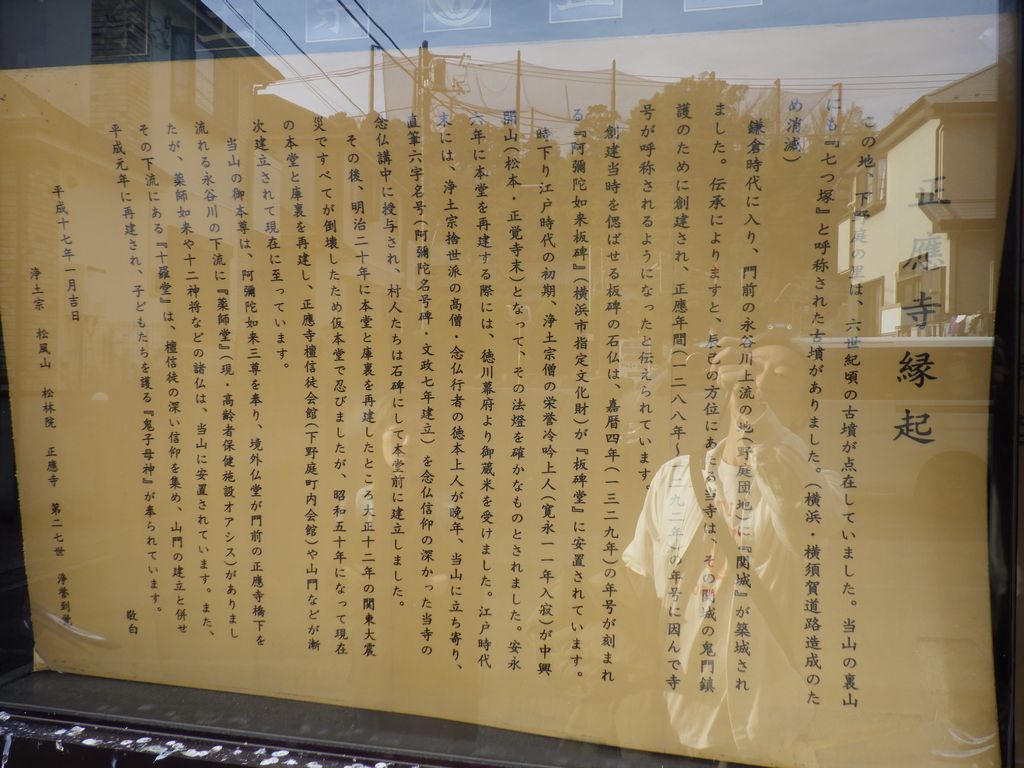 正應寺縁起
この地、下野庭の里は、六世紀頃の古墳が点在していました。当山の裏山
にも『七つ塚』と呼称された古墳がありました。(横浜・横須賀道路造成のた
め消滅)
鎌倉時代に入り、門前の永谷川上流の地(野庭団地)に『関城』が築城され
ました。伝承によりますと、辰己の方位にあたる当寺は、その関城の鬼門鎮
護のために創建され、正應年間(一二八八年〜一二九二年)の年号に因んで寺
号が呼称されるようになったと伝えられています。
創建当時を偲ばせる板碑の石仏は、嘉暦四年(一三二九年)の年号が刻まれ
る『阿彌陀如来板碑』(横浜市指定文化財)が『板碑堂』に安置されています。
時下り江戸時代の初期、浄土宗僧の栄誉冷吟上人(寛永一一年入寂)が中興
開山(松本・正覚寺末)となって、その法燈を確かなものとされました。安永
六年に本堂を再建する際には、徳川幕府より御蔵米を受けました。江戸時代
末には、浄土宗捨世派の高僧・念仏行者の徳本上人が晩年、当山に立ち寄り、
直筆六字名号(阿彌陀名号碑・文政七年建立)を念仏信仰の深かった当寺の
念仏講中に授与され、村人たちは石碑にして本堂前に建立しました。
その後、明治二十年に本堂と庫裏を再建したところ大正十二年の関東大震
災ですべてが倒壊したため仮本堂で忍びましたが、昭和五十年になって現在
の本堂と庫裏を再建し、正應寺檀信徒会館(下野庭町内会館)や山門などが漸
次建立されて現在に至っています。
当山の御本尊は、阿彌陀如来三尊を奉り、境外仏堂が門前の正應寺橋下を
流れる永谷川の下流に『薬師堂』(現・高齢者保健施設オアシス)がありまし
たが、薬師如来や十二神将などの諸仏は、当山に安置されています。また、
その下流にある『十羅堂』は、檀信徒の深い信仰を集め、山門の建立と併せ
平成元年に再建され、子どもたちを護る『鬼子母神』が奉られています。
敬白
平成十七年一月吉日
浄土宗 松風山 松林院 正應寺 第二七世 浄誉到覚